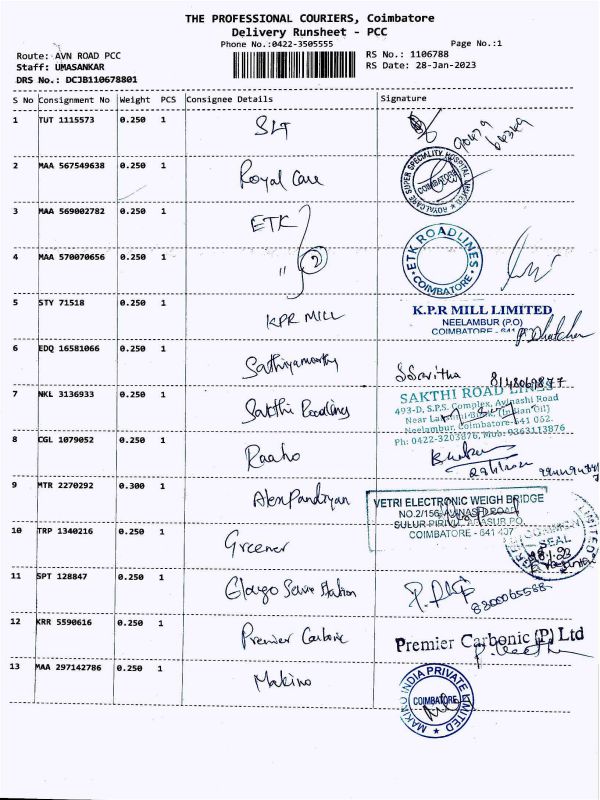 THE PROFESSIONAL COURIERS, Coimbatore
Delivery Runsheet - PCC
Phone No.:0422-3505555
Page No.:1
Route: AVN ROAD PCC
RS No.: 1106788
Staff: UMASANKAR
RS Date: 28-Jan-2023
DRS No.: DCJB110678801
S No Consignment No Weight PCS Consignee Details Signature
1 TUT 1115573 0.250 1 SLT
2 MAA 567549638 0.250 1 Royal Care
ROYALCARE SUPER SPECIALITY HOSPITAL LIMITED
COIMBATORE
3 MAA 569002782 0.250 1 ETK
4 MAA 570070656 0.250 1 " 2
ETK ROADLINES
COIMBATORE
5 STY 71518 0.250 1 KPR MILL
K.P.R MILL LIMITED
NEELAMBUR (P.O)
COIMBATORE - 641
6 EDQ 16581066 0.250 1 Sathiyamoorthy
S Savitha 8148069877
7 NKL 3136933 0.250 1 Sakthi Roadlines
SAKTHI ROAD LINES
493-D, S.P.S. Complex, Avinashi Road
Near Lakshmi Bunk, (Indian Oil)
Neelambur, Coimbatore-641 062.
Ph: 0422-3203876, Mob: 9363113876
8 CGL 1079052 0.250 1 Raaho
9 MTR 2270292 0.300 1 Alenpandiyan
VETRI ELECTRONIC WEIGH BRIDGE
NO.2/156, AVINASHI ROAD
SULUR PIRIVU, ARASUR PO.
COIMBATORE - 641 407
10 TRP 1340216 0.250 1 Greener
COMMON
SEAL
28.1.23
11 SPT 128847 0.250 1
8300065588
12 KRR 5590616 0.250 1 Premier Carbonic
Premier Carbonic (P) Ltd
13 MAA 297142786 0.250 1 Makino
MAKINO INDIA PRIVATE LIMITED
COIMBATORE